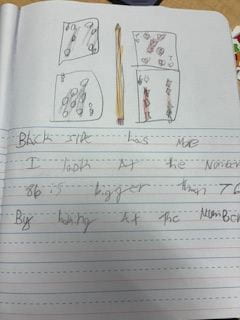 Black side has more
I look At the Number
86 is bigger then 76
By looking At the Number